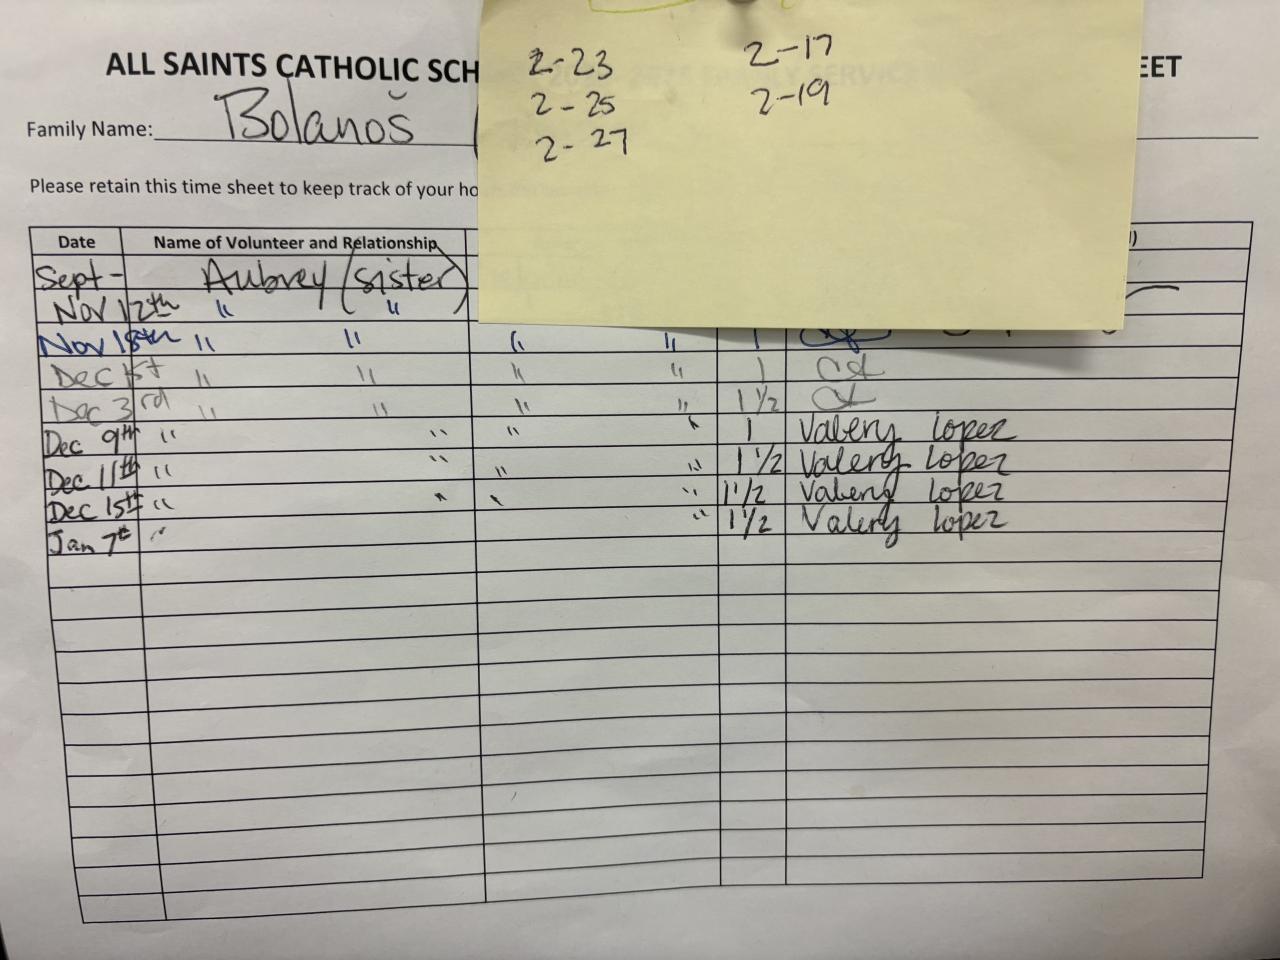 2-23 2-17
2-25 2-19
2-27
ALL SAINTS CATHOLIC SCH EET
Family Name: Bolanos
Please retain this time sheet to keep track of your ho
Date Name of Volunteer and Relationship
Sept- Aubrey (sister)
Nov 12th " "
Nov 18th " " " " 1
Dec 1st " " " " 1
Dec 3rd " " " " 1 1/2
Dec 9th " " " " 1 Valery Lopez
Dec 11th " " " " 1 1/2 Valery Lopez
Dec 15th " " " " 1 1/2 Valery Lopez
Jan 7th " " 1 1/2 Valery Lopez